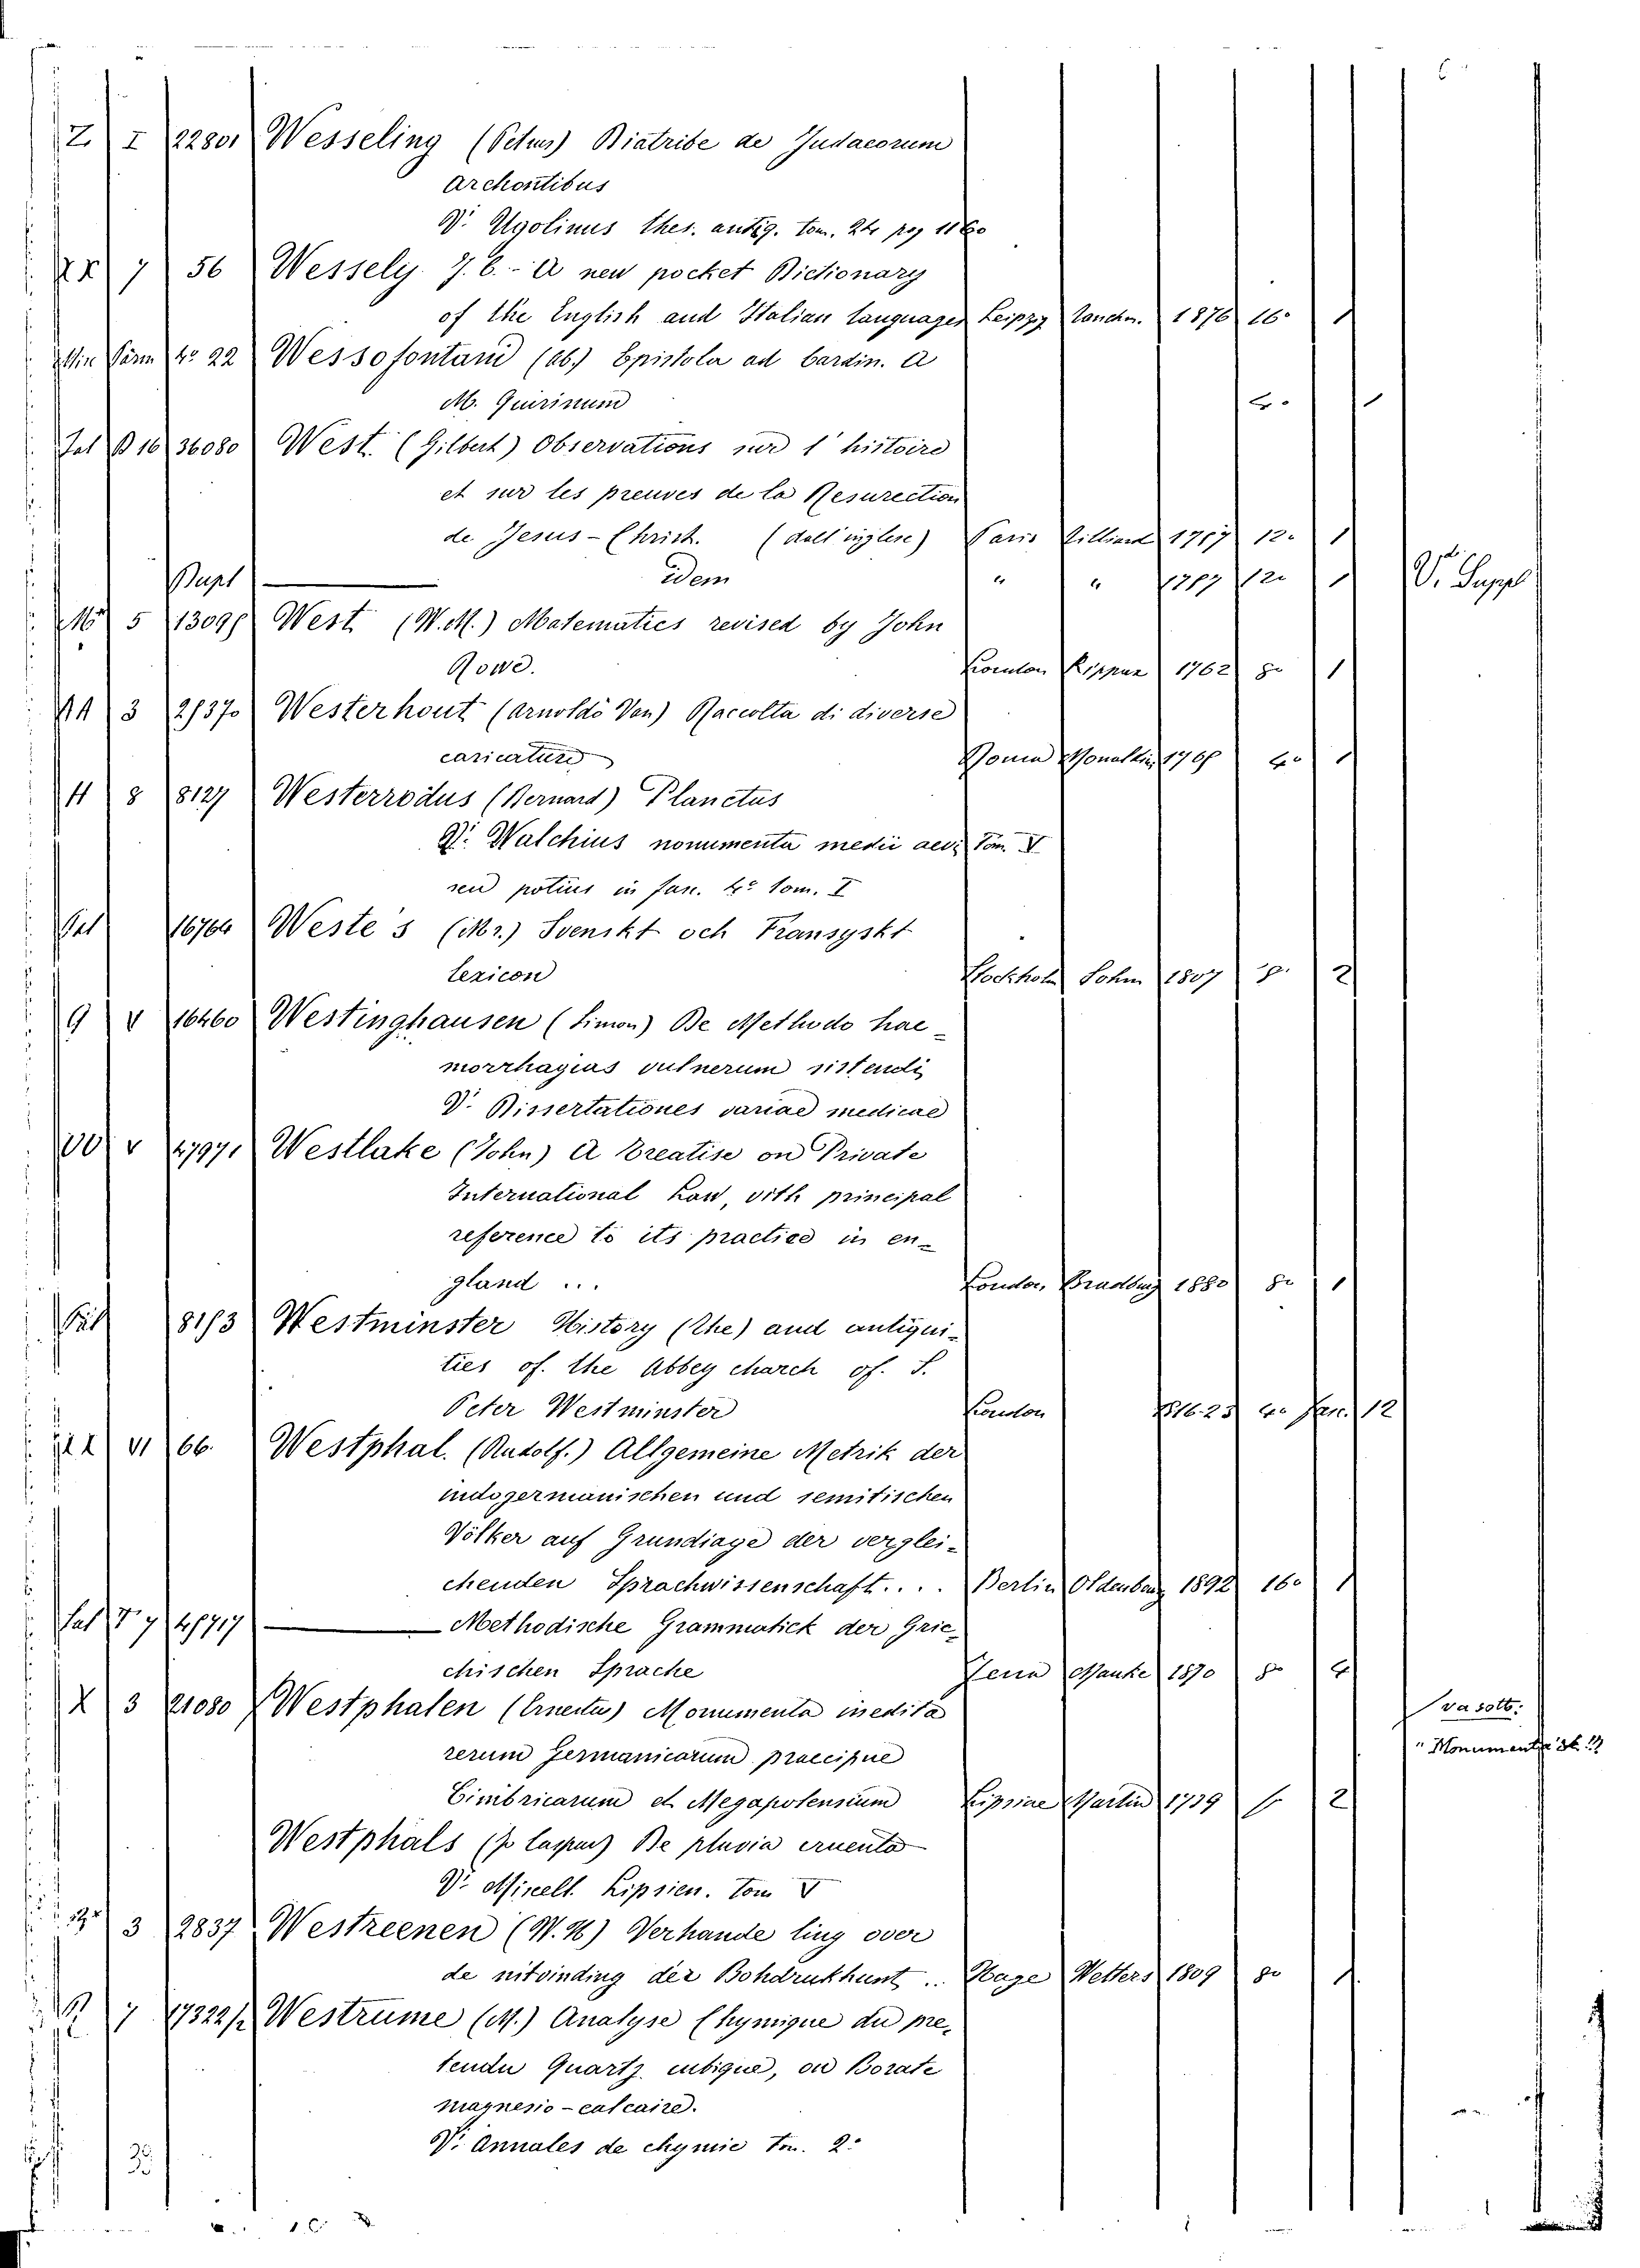 Z. I 22801 Wesseling (Petrus) Diatribe de Judaeorum
Archontibus
V. Ugolinus thes. antiq. tom. 24 pag 1160
7 56 Wessely J. E. - A new pocket Dictionary
of the English and Italian languages Leipzig Tauchn. 1876 16° 1
Min 4° 22 Wessofontani (ab.) Epistola ad Cardin. A
M. Quirinum 4° 1
Sal B 16 36080 West (Gilbert) Observations sur l'histoire
et sur les preuves de la Resurection
de Jesus-Christ. (dall'inglese) Paris Tilliard 1757 12° 1
Dupl — idem " " 1757 12° 1 V. Suppl
5 13095 West (W. M.) Matematics revised by John
Rowe. London 1762 8° 1
AA 3 21370 Westerhout (Arnoldo Van) Raccolta di diverse
caricature Roma 4° 1
H 8 8127 Westerrodus (Bernard) Planctus
V. Walchius nonumenta medii aevi Tom. V
seu potius in fasc. 4° tom. I
Sal 16764 Weste's (Mr.) Svenskt och Fransyskt
lexicon Stockholm Sohm 1807 8° 2
9 V 16460 Westinghausen (Simon) De Methodo hae-
morrhagias vulnerum sistendi
V. Dissertationes variae medicae
OO V 47971 Westlake (John) A treatise on Private
International Law, vith principal
reference to its practice in en-
gland ... London, Bradbury 1880 8° 1
Sal 8153 Westminster History (The) and antiqui-
ties of the Abbey church of S.
Peter Westminster London 1816-23 4° fasc. 12
VI 66. Westphal. (Rudolf.) Allgemeine Metrik der
indogermanischen und semitischen
Völker auf Grundiage der verglei-
chenden Sprachwissenschaft.... Berlin Oldenburg 1892 16° 1
Sal T 7 — Methodische Grammatick der Grie-
chischen Sprache Jena Mauke 1870 8° 4
X 3 21080 Westphalen (Ernestus) Monumenta inedita
rerum Germanicarum praecipue
Cimbricarum et Megapolensium Lipsiae Martin 1739 f° 2
va sotto:
"Monumenta
Westphals (Jo Caspar) De pluvia cruenta
V. Miscell. Lipsien. Tom V
3 2837 Westreenen (W. H) Verhande ling over
de uitvinding der Bohdrukkunt .. Hage Wetters 1809 8° 1
7 17322/2 Westrume (M.) Analyse Chymique du pre-
tendu Quartz cubique, ou Borate
magnesio-calcaire.
V. Annales de chymie Tm. 2.